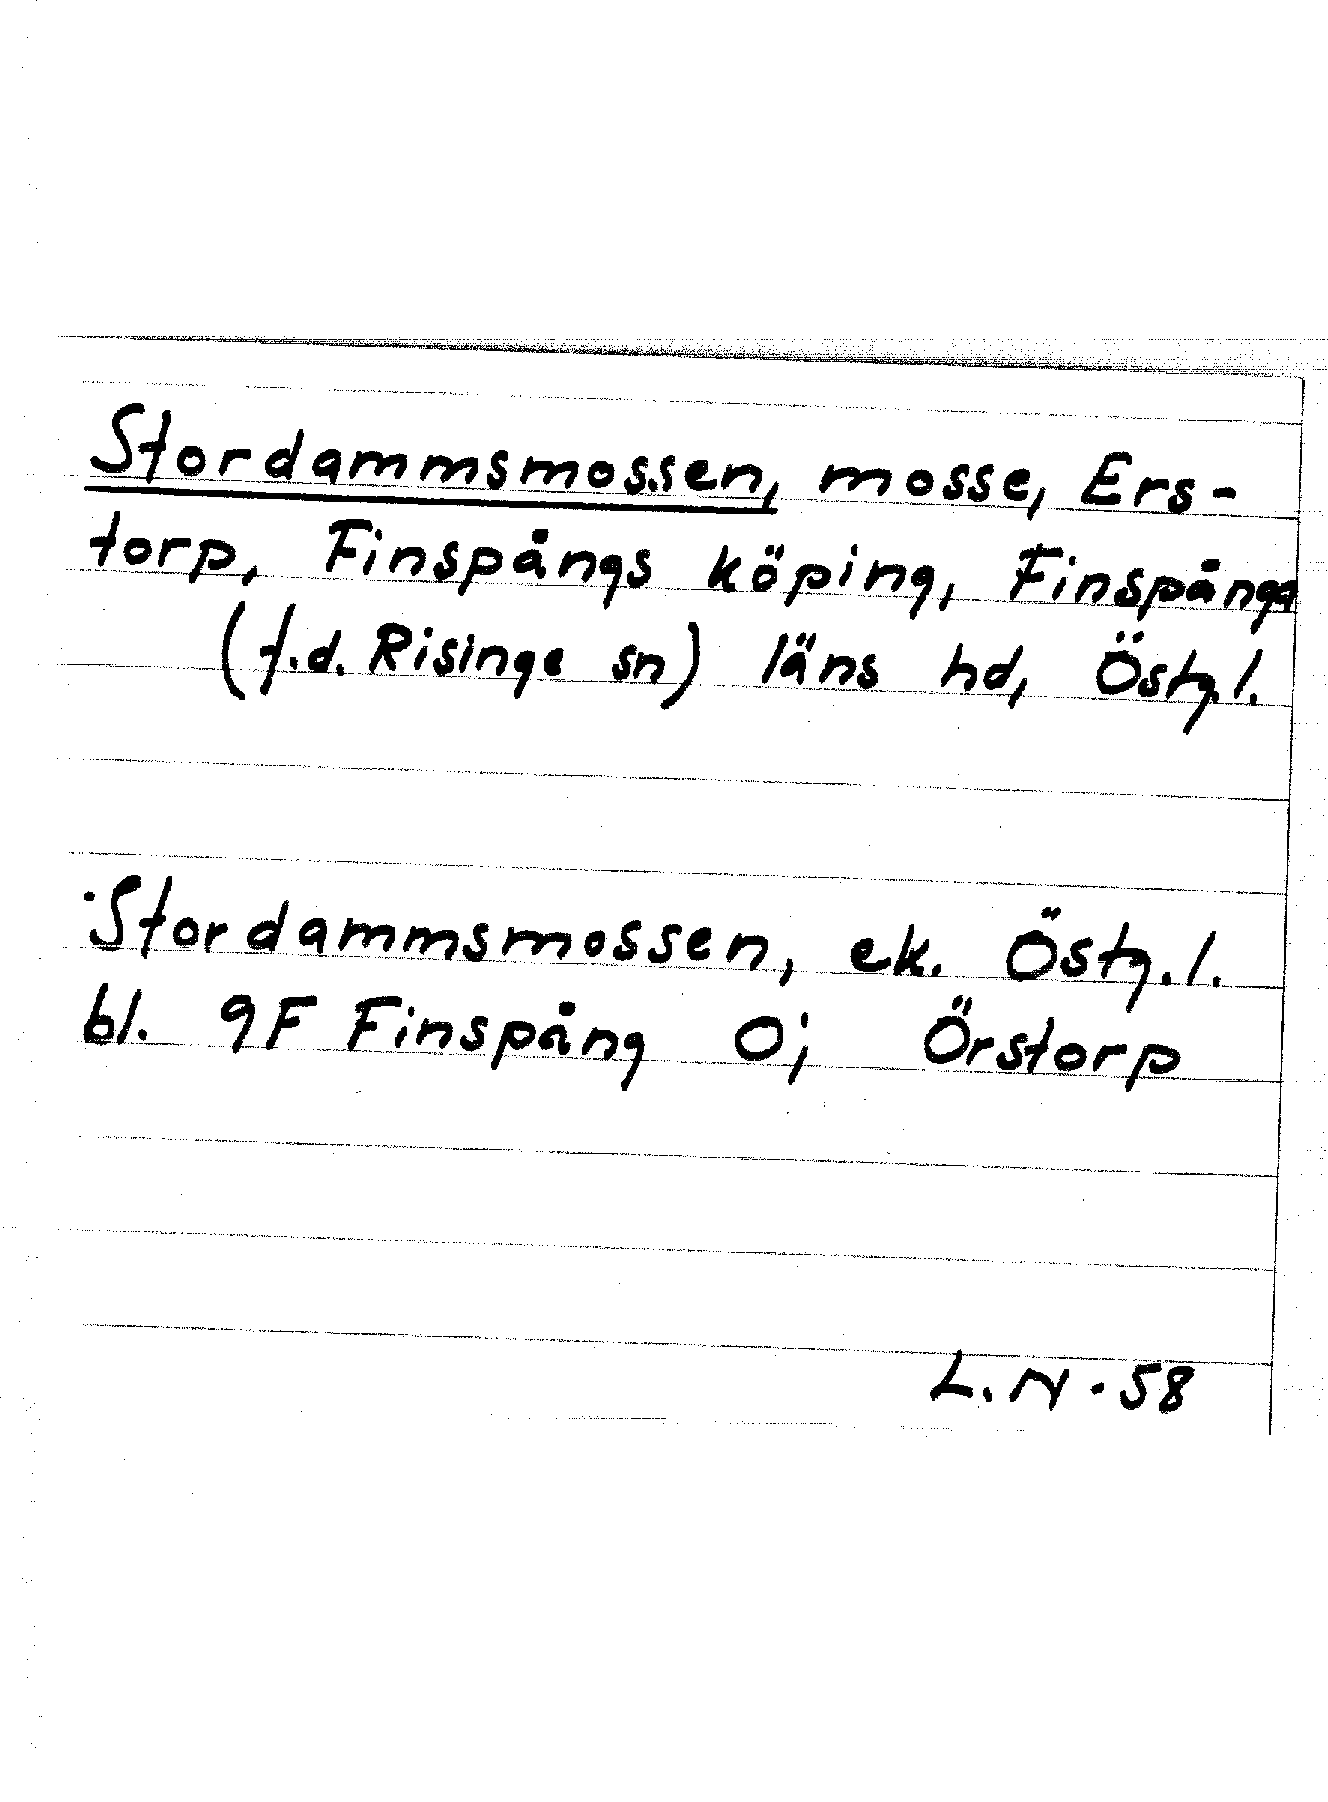 Stordammsmossen, mosse, Ers-
torp, Finspångs köping, Finspånga
(f.d. Risinge sn) läns hd, Östg.l.
Stordammsmossen, ek. Östg.l.
bl. 9F Finspång O; Örstorp
L.N. 58